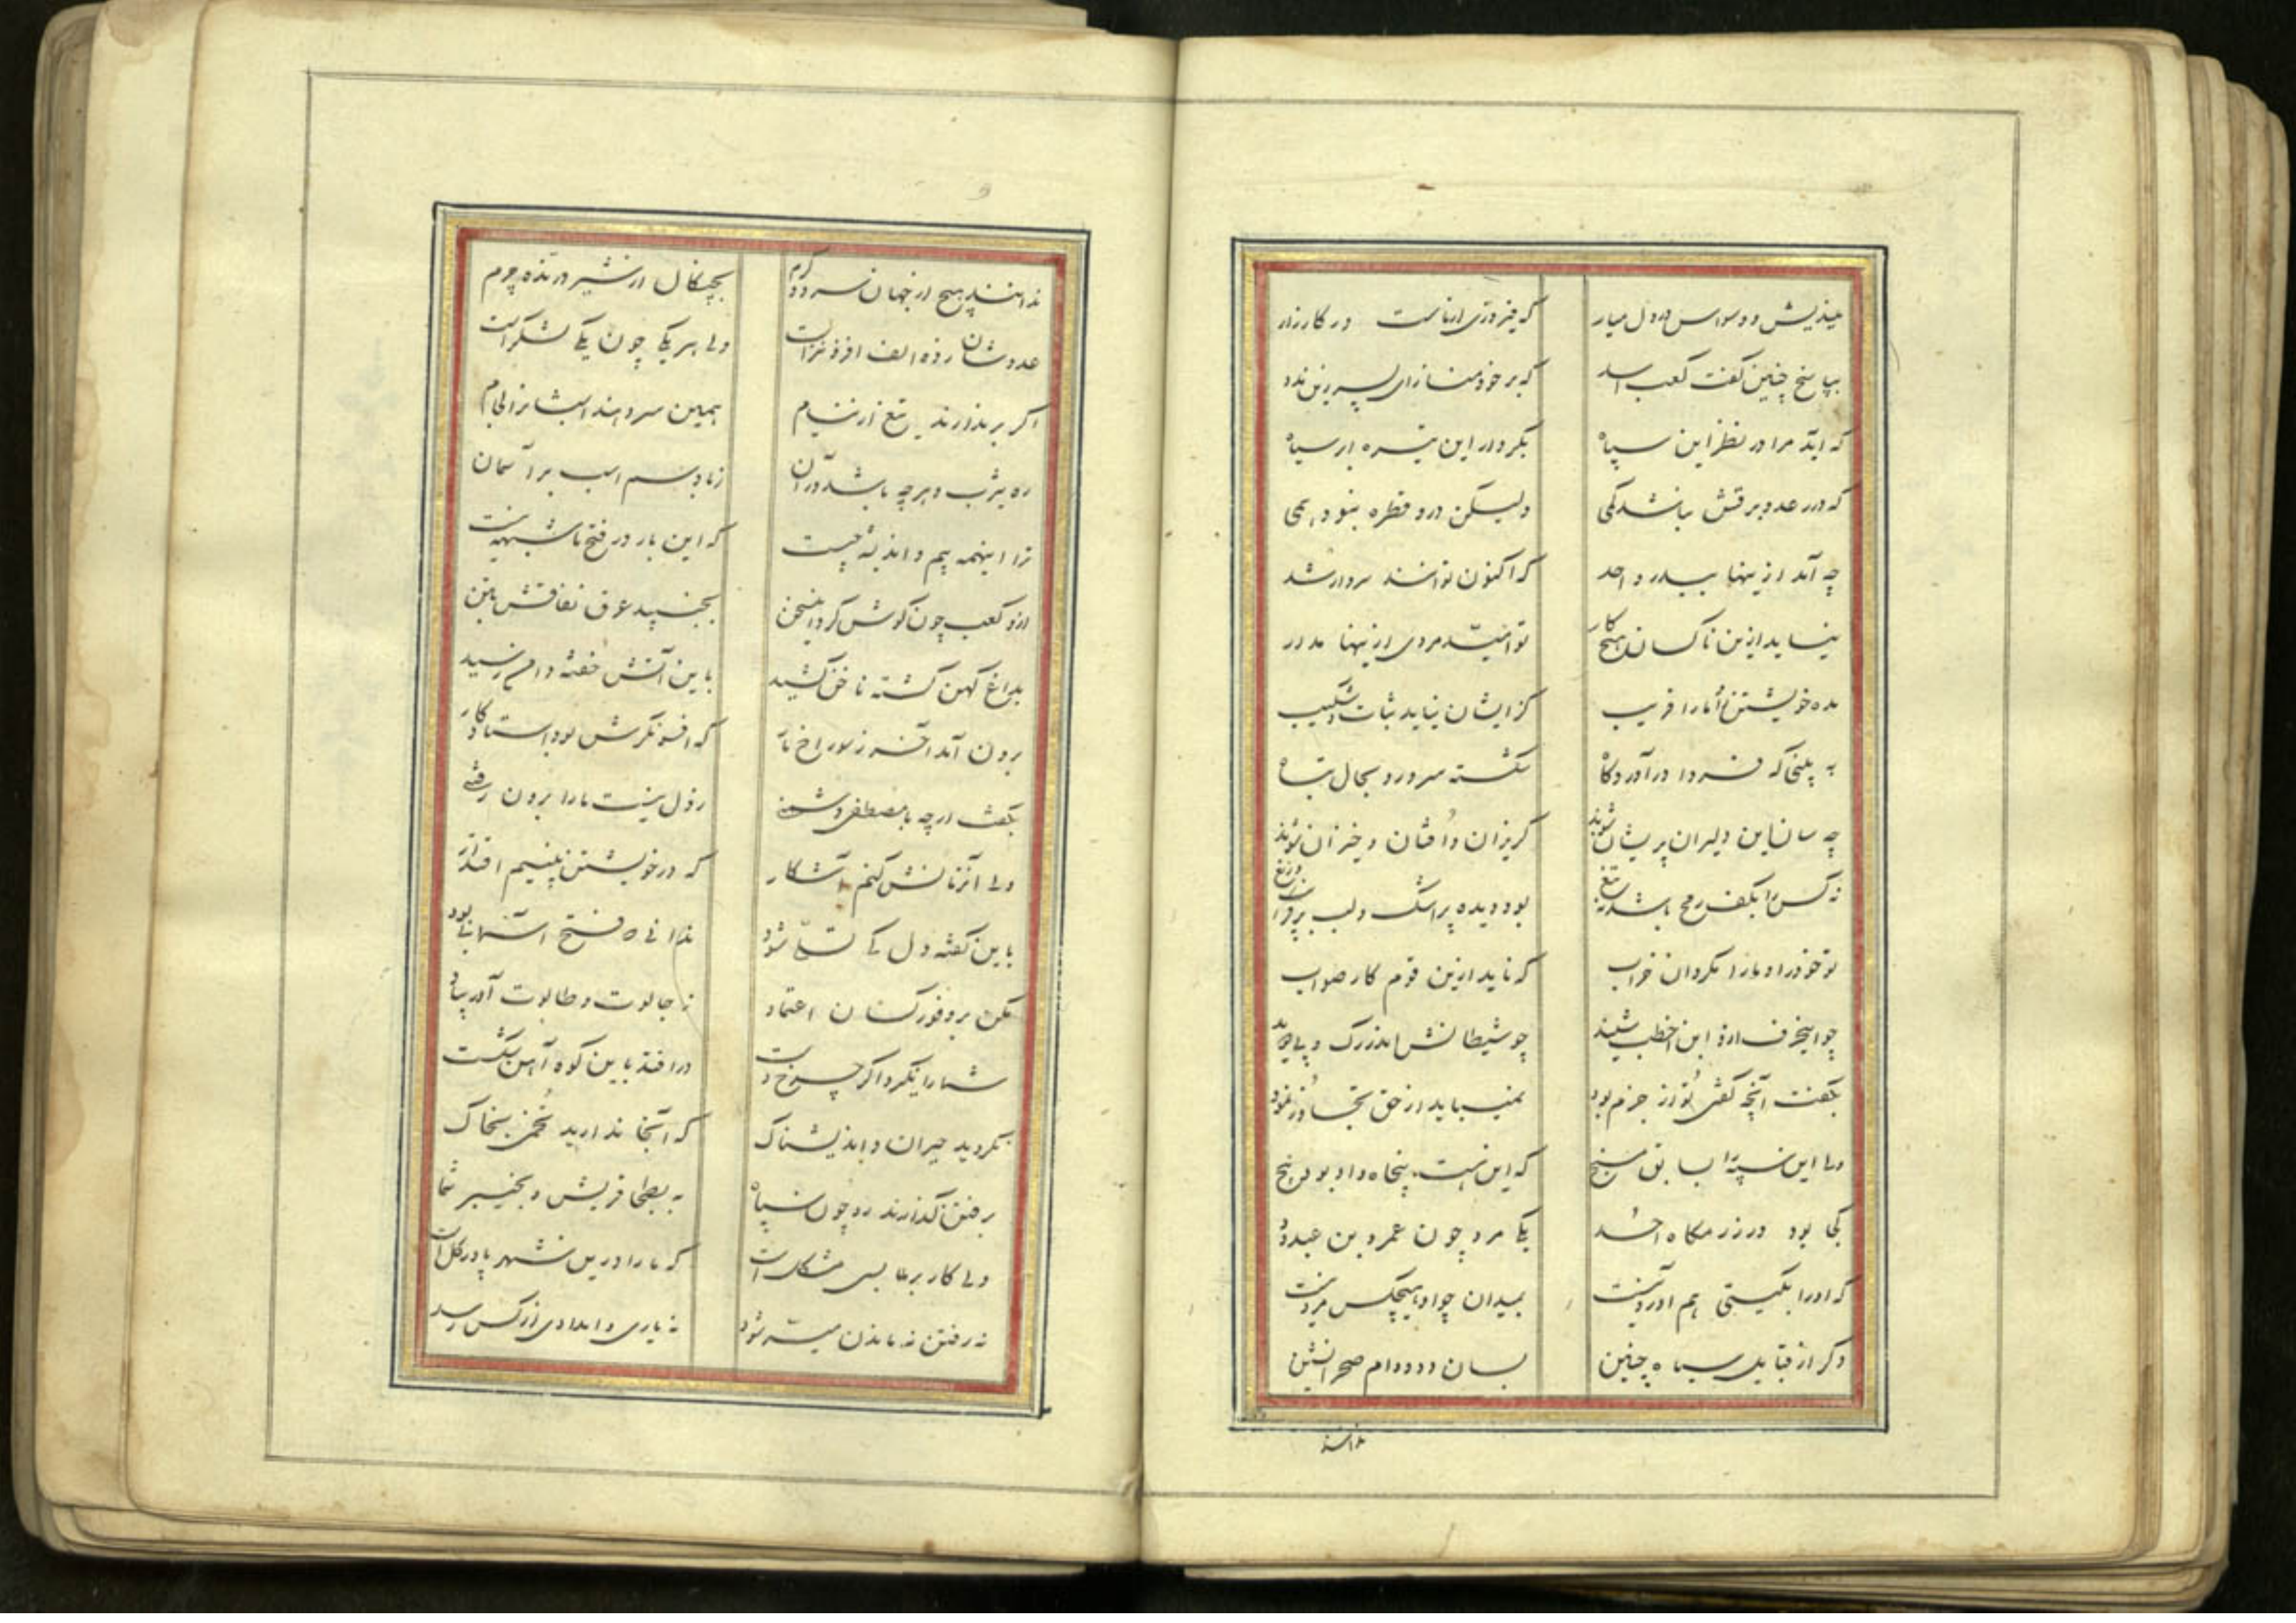 میندیش و وسواس در دل میار که فیروزی از ماست در کارزار
بپاسخ چنین گفت کعب اسد که بر خود مناز ای پسر زین عدد
که آید مرا در نظر این سپاه بکردار این تیره ابر سیاه
که در رعد و برقش نباشد کمی ولیکن درو قطره نبود همی
چه آمد ازینها ببدر و احد که اکنون توانند سردار شد
نیاید ازین ناکسان هیچ کار تو امید مردی ازینها مدار
مده خویشتن را و ما را فریب کز ایشان نیاید ثبات و شکیب
به بینی که فردا در آوردگاه شکسته سر و رو بحال تباه
چه سان این دلیران پریشان شوند گریزان و افتان و خیزان شوند
نه کس را بکف رمح باشد نه تیغ بود دیده پر اشک و لب پر دریغ
تو خود را و ما را مگردان خراب که ناید ازین قوم کار صواب
چو این حرف ازو ابن اخطب شنید چو شیطانش اندر رگ و پی دوید
بگفت آنچه گفتی تو از حزم بود نمیباید از حق تجاوز نمود
ولی این سپه را بسابق مسنج که این هست پنجاه و او بود پنج
کجا بود در رزمگاه احد یکی مرد چون عمرو بن عبدود
که او را بگیتی هم آورد نیست بمیدان چو او هیچکس مرد نیست
دگر از قبایل سپاه چنین بسان دد و دام صحرا نشین
ندانند
ندانند هیچ از جهان سرد و گرم بچنگال از شیر درنده چرم
عدوشان ز ده الف افزونتر است ولی هر یکی چون یکی لشکر است
اگر بر ندارند تیغ از نیام همین سر دهند اسبشانرا لجام
ره یثرب و هر چه باشد در آن ز باد سم اسب بر آسمان
ترا اینهمه بیم و اندیشه چیست که این بار در فتح ما شبهه نیست
ازو کعب چون گوش کرد این سخن بجنبید عرق نفاقش بتن
بداغ کهن گشته ناخن کشید باین آتش خفته دامن رسید
برون آمد آخر ز سوراخ مار که افسونگرش بود استاد کار
بگفت ار چه با مصطفی دشمنی ز دل نیست ما را برون رفتنی
ولی آنزمانش کنم آشکار که در خویشتن بینیم اقتدار
باین گفته دل کی تسلی شود
مکن بر وفور کسان اعتماد ز جالوت و طالوت آور بیاد
شما را نگردد اگر چرخ در افتد باین کوه آهن شکست
نگردید حیران و اندیشناک که آنجا ندارید تخمی بخاک
برفتن گذارند رو چون سپاه به بطحا قریش و بخیبر شما
ولی کار بر ما بسی مشکل است که ما را درین شهر پا در گل است
نه رفتن نه ماندن میسر شود نه یاری و امدادی از کس رسد